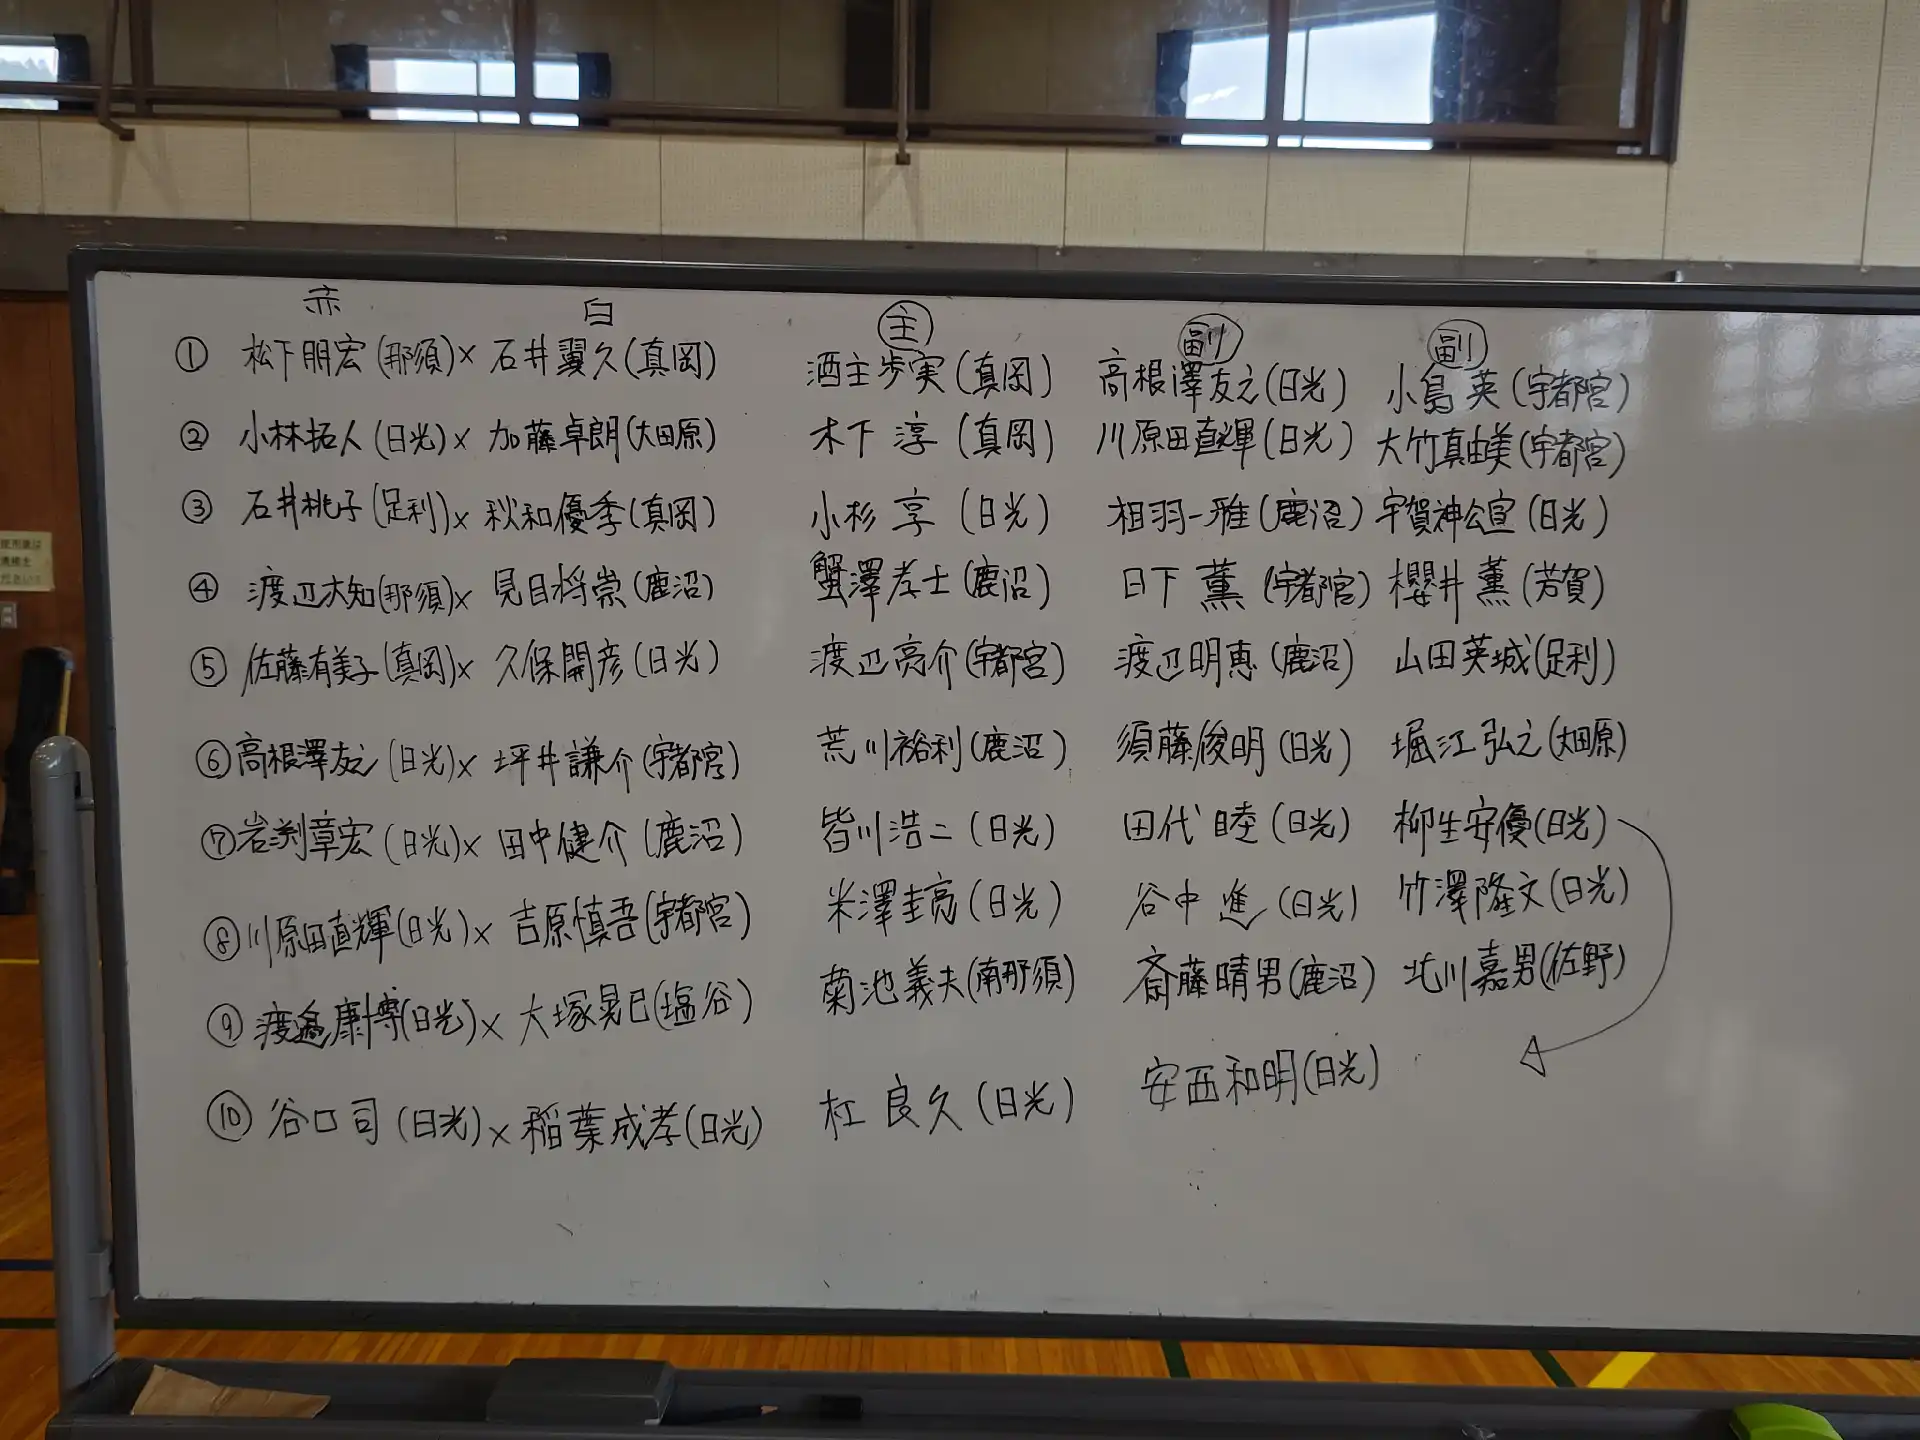 赤 白 主 副 副
① 松下朋宏(那須)× 石井翼久(真岡) 酒主歩実(真岡) 高根澤友之(日光) 小島 英(宇都宮)
② 小林拓人(日光)× 加藤卓朗(大田原) 木下 淳(真岡) 川原田直輝(日光) 大竹真由美(宇都宮)
③ 石井桃子(足利)× 秋和優季(真岡) 小杉 享(日光) 相羽一雅(鹿沼) 宇賀神公宣(日光)
④ 渡辺大知(那須)× 見目将崇(鹿沼) 蟹澤孝士(鹿沼) 日下 薫(宇都宮) 櫻井 薫(芳賀)
⑤ 佐藤有美子(真岡)× 久保開彦(日光) 渡辺亮介(宇都宮) 渡辺明恵(鹿沼) 山田英城(足利)
⑥ 高根澤友之(日光)× 坪井謙介(宇都宮) 荒川裕利(鹿沼) 須藤俊明(日光) 堀江弘之(大田原)
⑦ 岩渕章宏(日光)× 田中健介(鹿沼) 皆川浩二(日光) 田代 睦(日光) 柳生安優(日光)
⑧ 川原田直輝(日光)× 吉原慎吾(宇都宮) 米澤圭亮(日光) 谷中 進(日光) 竹澤隆文(日光)
⑨ 渡邉康博(日光)× 大塚晃巳(塩谷) 菊池義夫(南那須) 斎藤晴男(鹿沼) 北川嘉男(佐野)
⑩ 谷口司(日光)× 稲葉成孝(日光) 杜 良久(日光) 安西和明(日光)